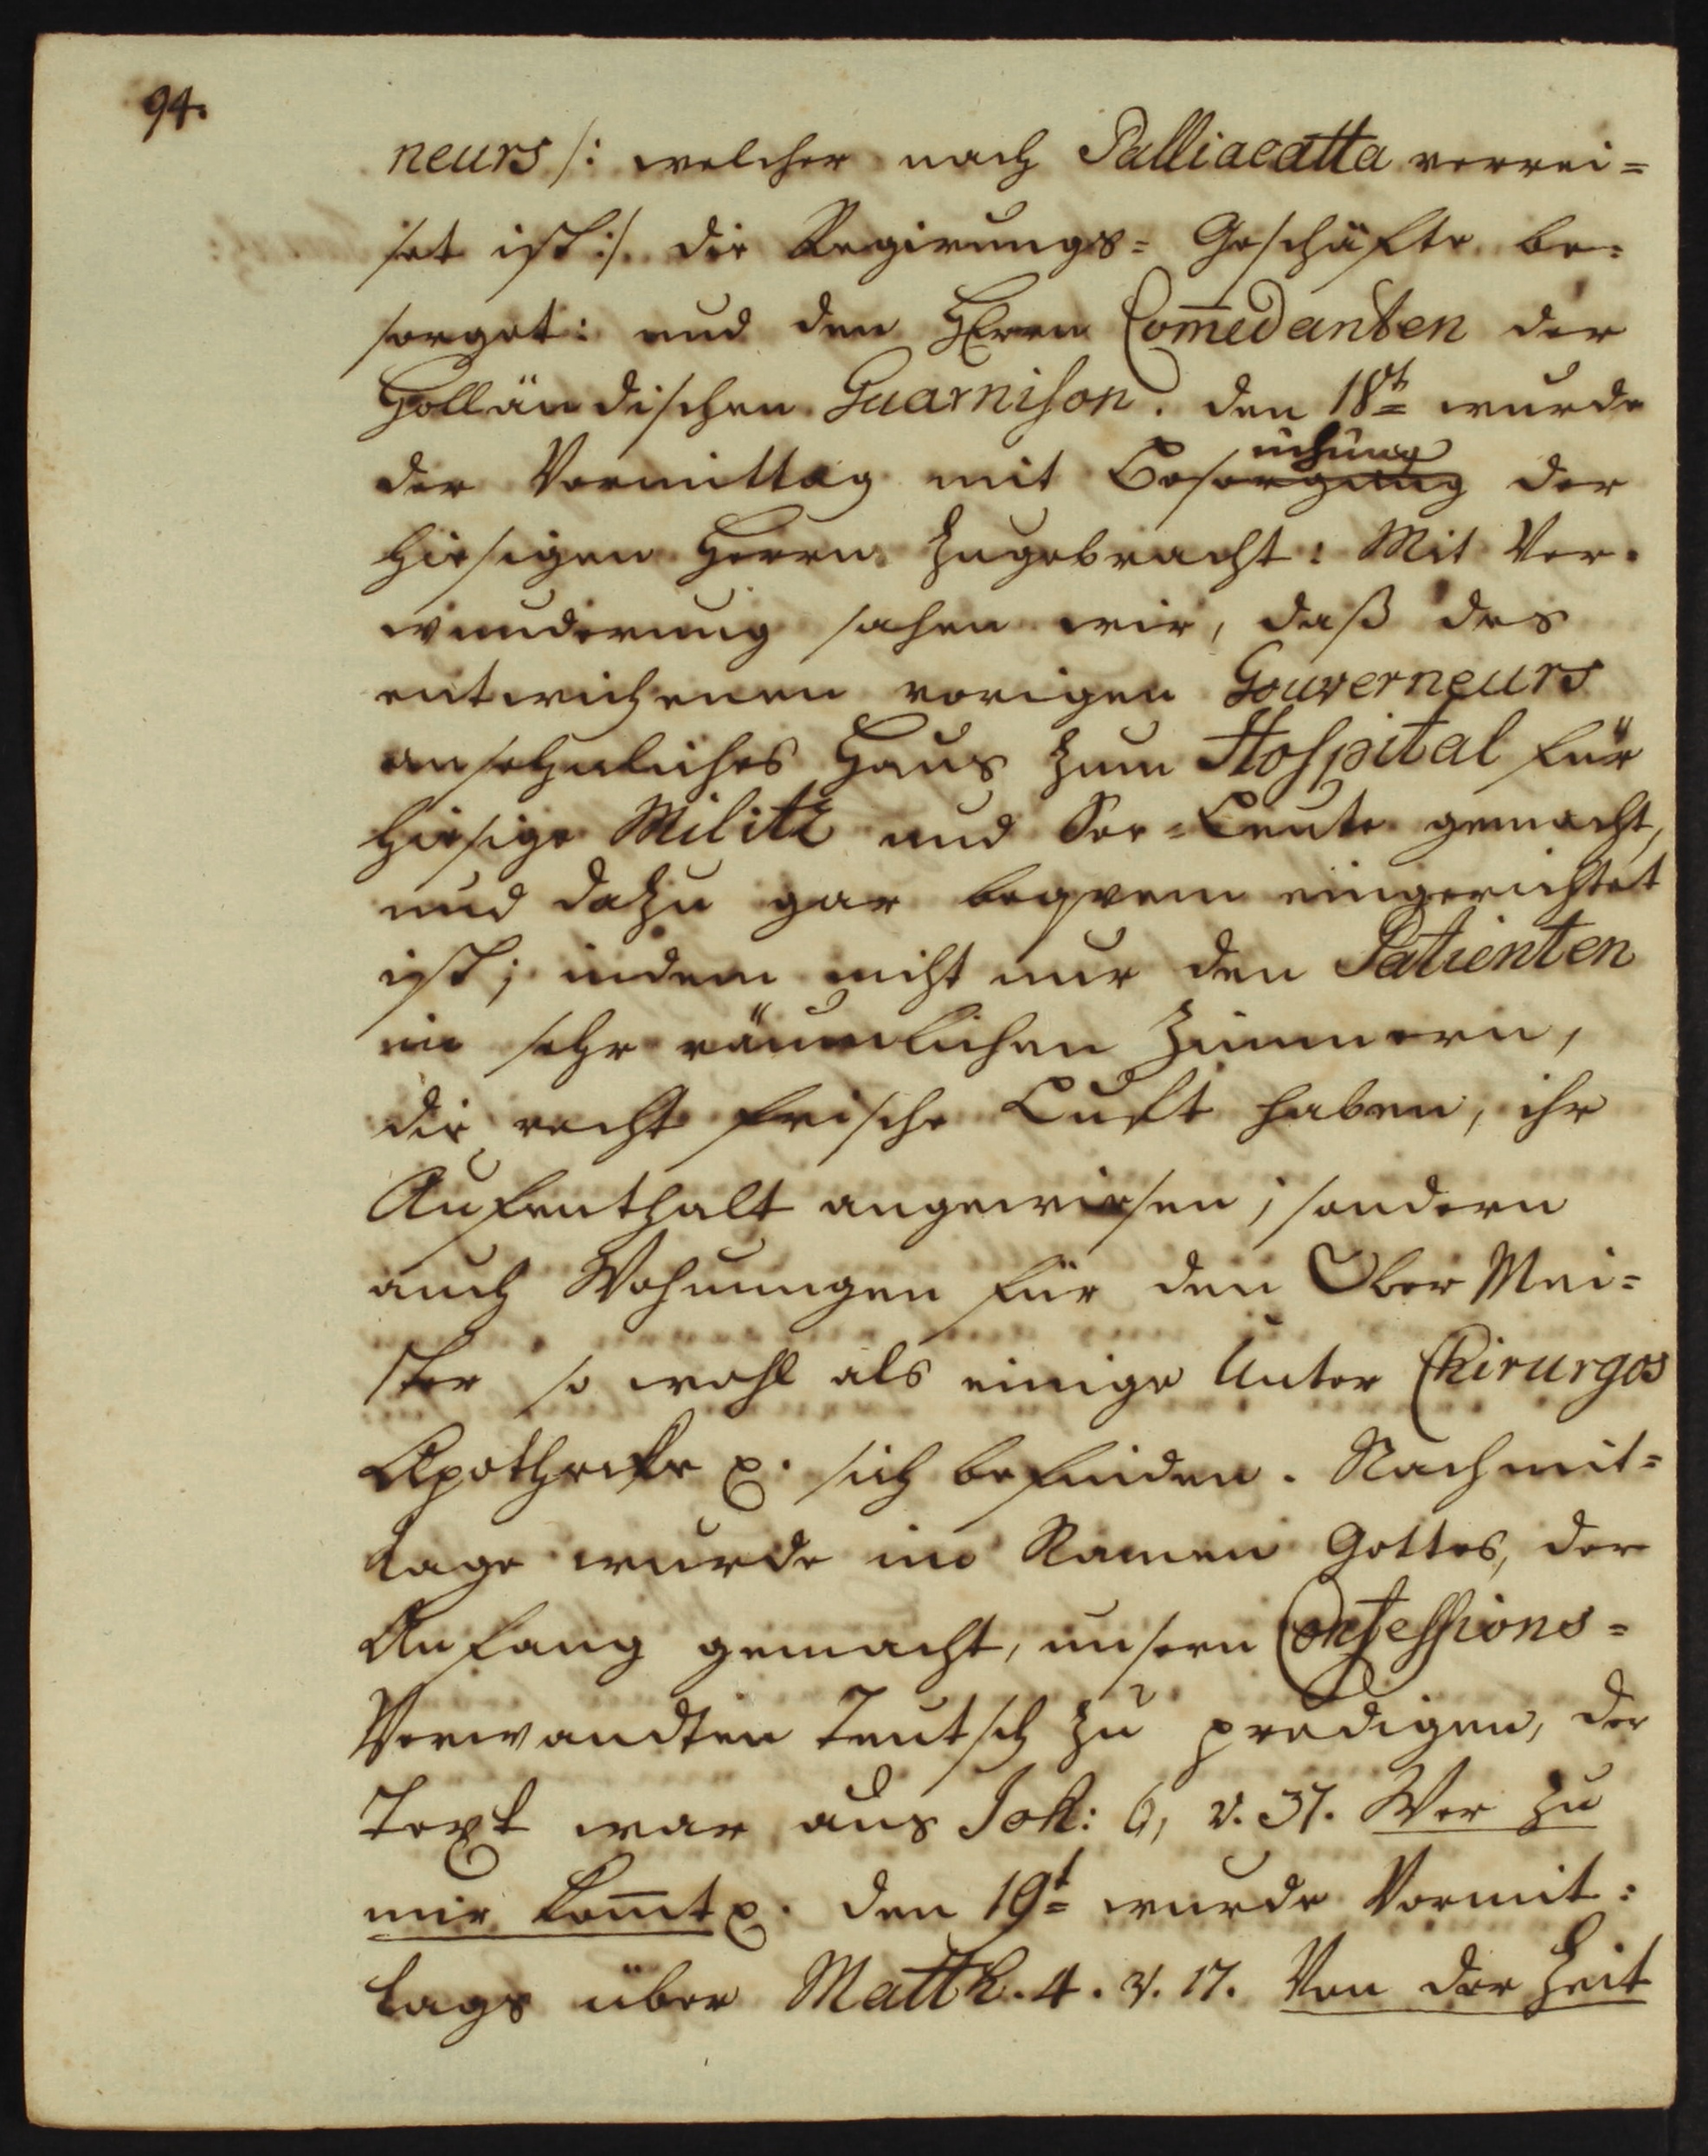 94.
neurs /: welcher nach Palliacatta verrei=
set ist :/ die Regirungs= Geschäfte be=
sorget: und den HErrn Com̄edanten der
Holländischen Guarnison. den 18t. wurde
uchung
der Vormittag mit Besorgung der
hiesigen Herrn zugebracht: Mit Ver=
wunderung sahen wir, daß des
entwichenen vorigen Gouverneurs
ansehnliches Haus zum Hospital für
hiesige Militz und See=Leute gemacht,
und dazu gar beqvem eingerichtet
ist; indem nicht nur den Patienten
in sehr räumlichen Zimmern,
die recht frische Luft haben, ihr
Aufenthalt angewiesen; sondern
auch Wohnungen für den Ober Mei=
ster so wohl als einige Unter Chirurgos
Apothecke p. sich befinden. Nachmit=
tage wurde im Namen Gottes, der
Anfang gemacht, unsern Confessions=
Verwandten Teutsch zu predigen, der
Text war aus Joh: 6, v. 37. Wer zu
mir kom̄t p. den 19t. wurde Vormit=
tags über Matth. 4. v. 17. Von der Zeit